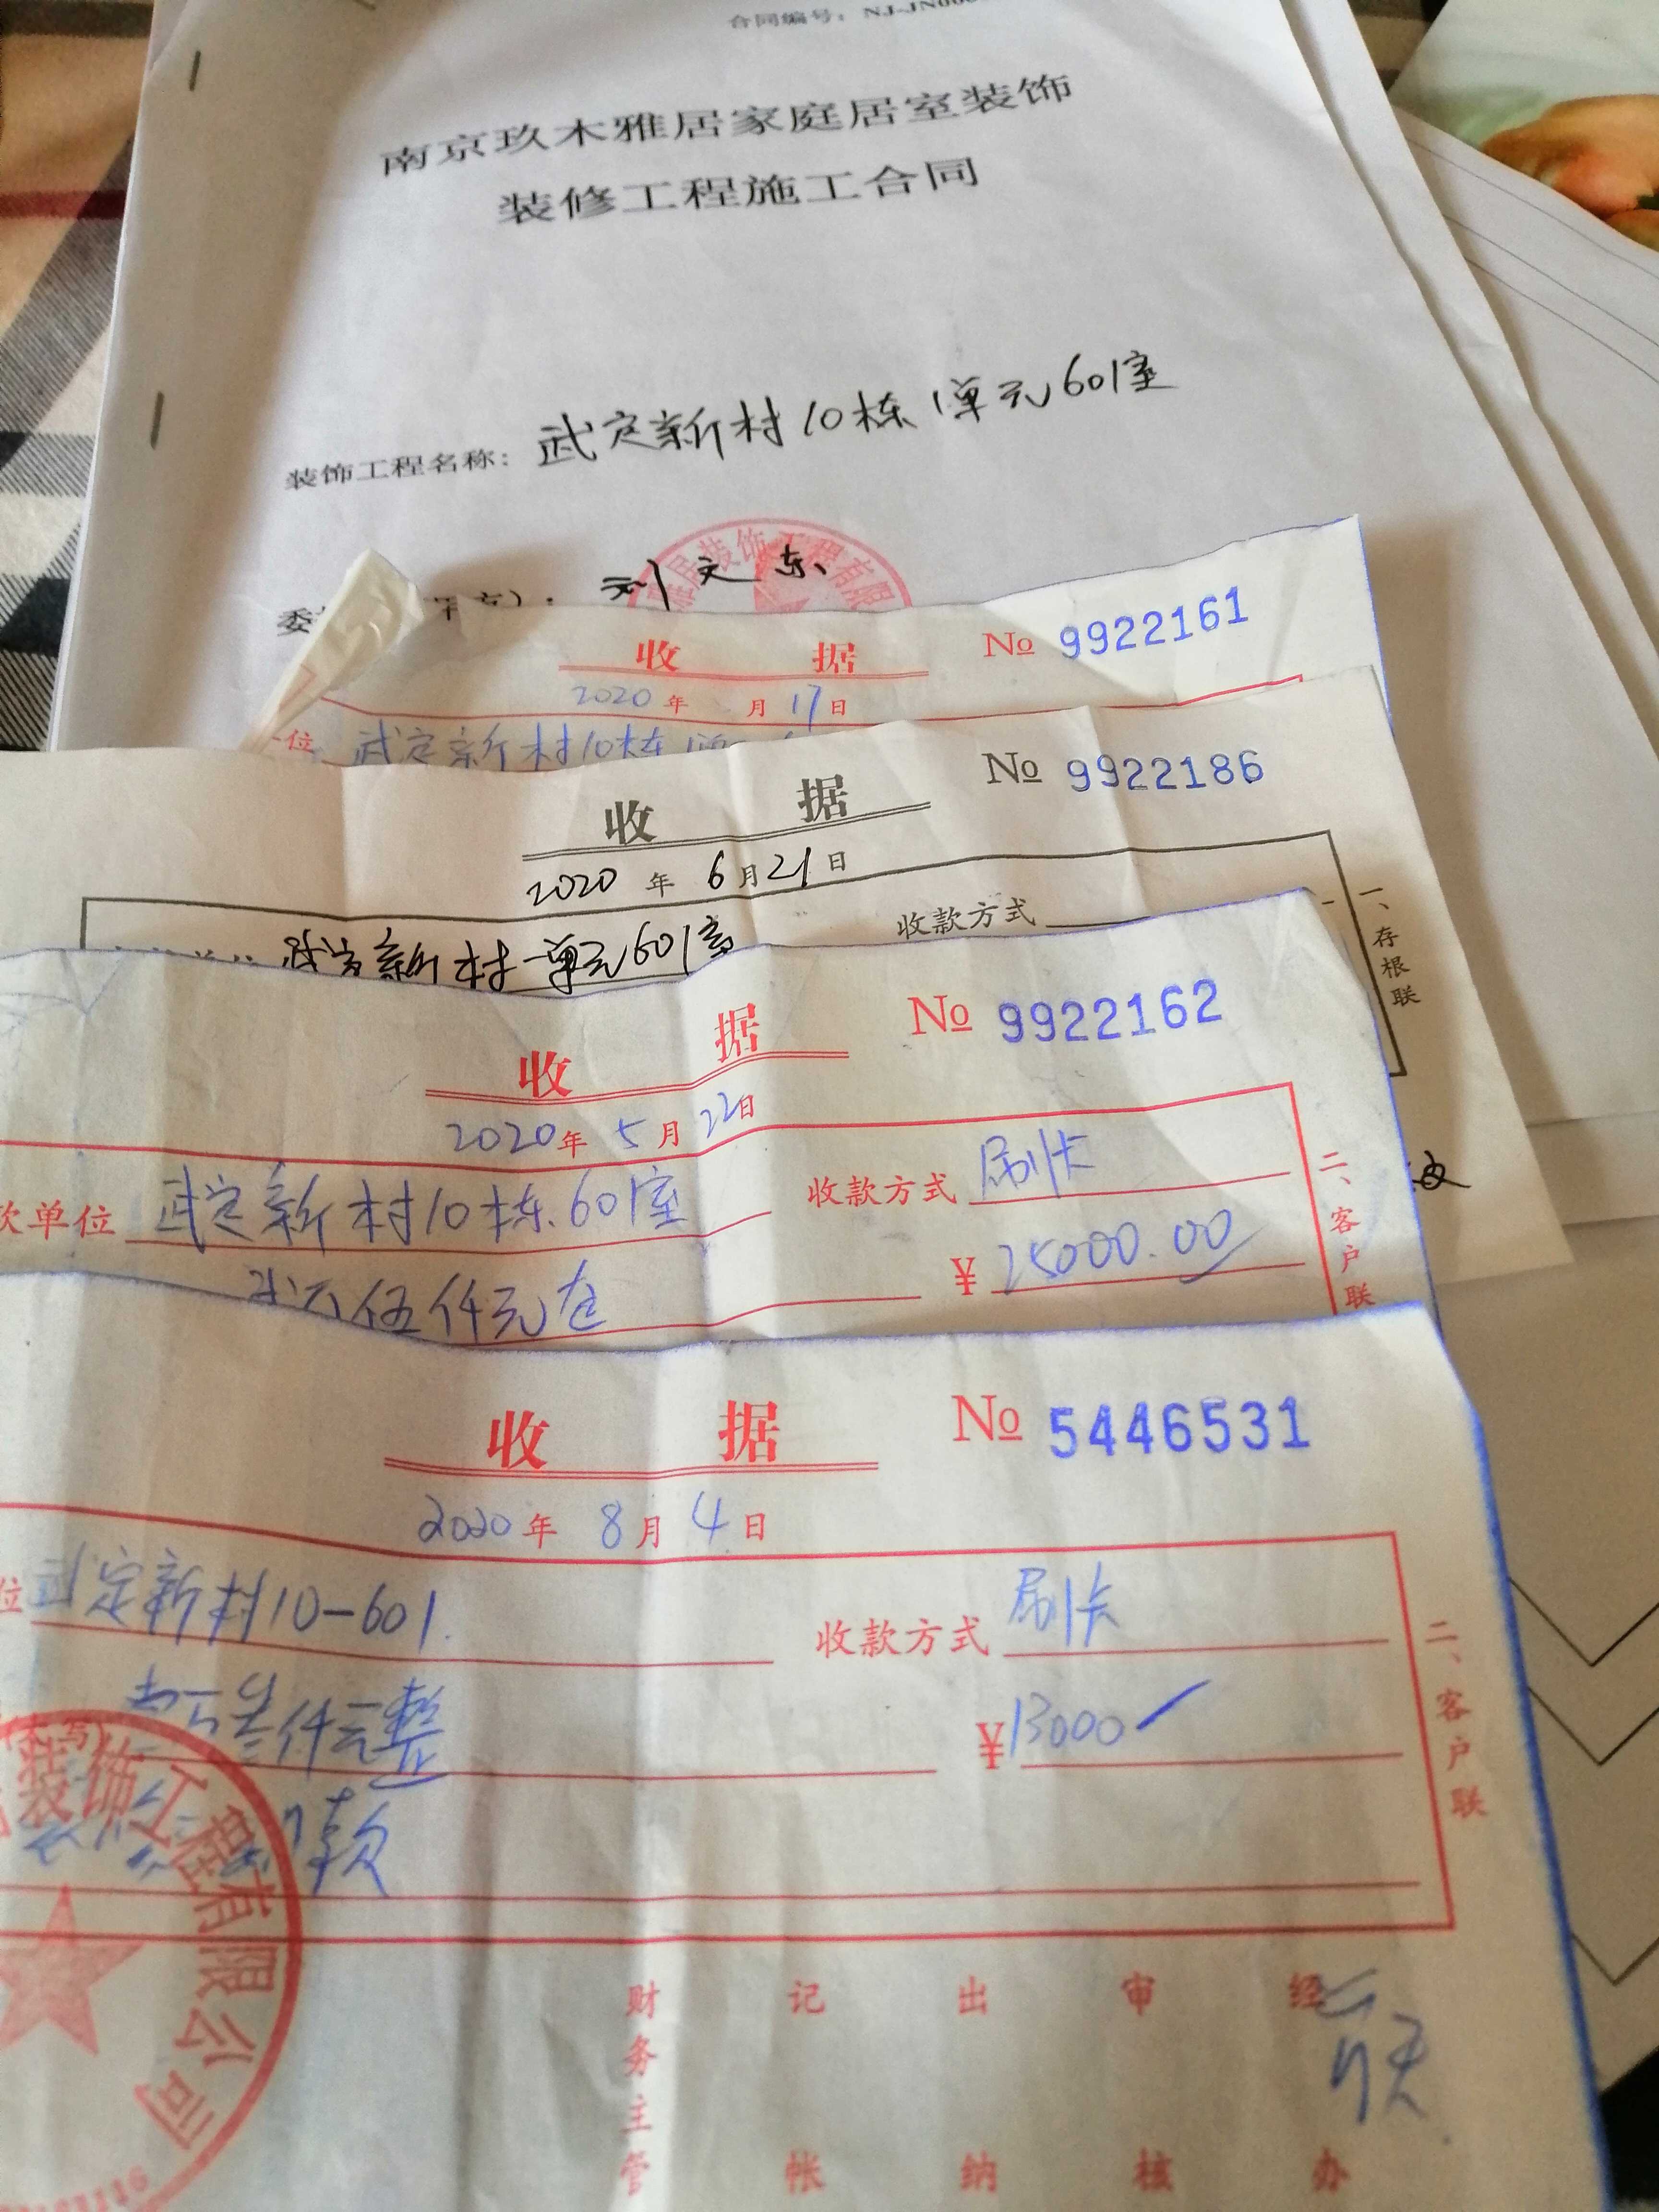 合同编号：NJ-JN00
南京玖木雅居家庭居室装饰
装修工程施工合同
装饰工程名称：武定新村10栋1单元601室
委 刘文东
雅居装饰工程有限
收 据 No 9922161
2020年 月17日
位 武定新村10栋1单
收 据 No 9922186
2020年6月21日
武定新村一单元601室 收款方式
一、存根联
收 据 No 9922162
2020年5月22日
款单位 武定新村10栋.601室 收款方式 刷卡
伍仟元仓 ¥25000.00
二、客户联
收 据 No 5446531
2020年8月4日
位 武定新村10-601. 收款方式 刷卡
叁仟元整 ¥13000
写)
款
二、客户联
装饰工程有限公司
财务主管 记帐 出纳 审核 经办